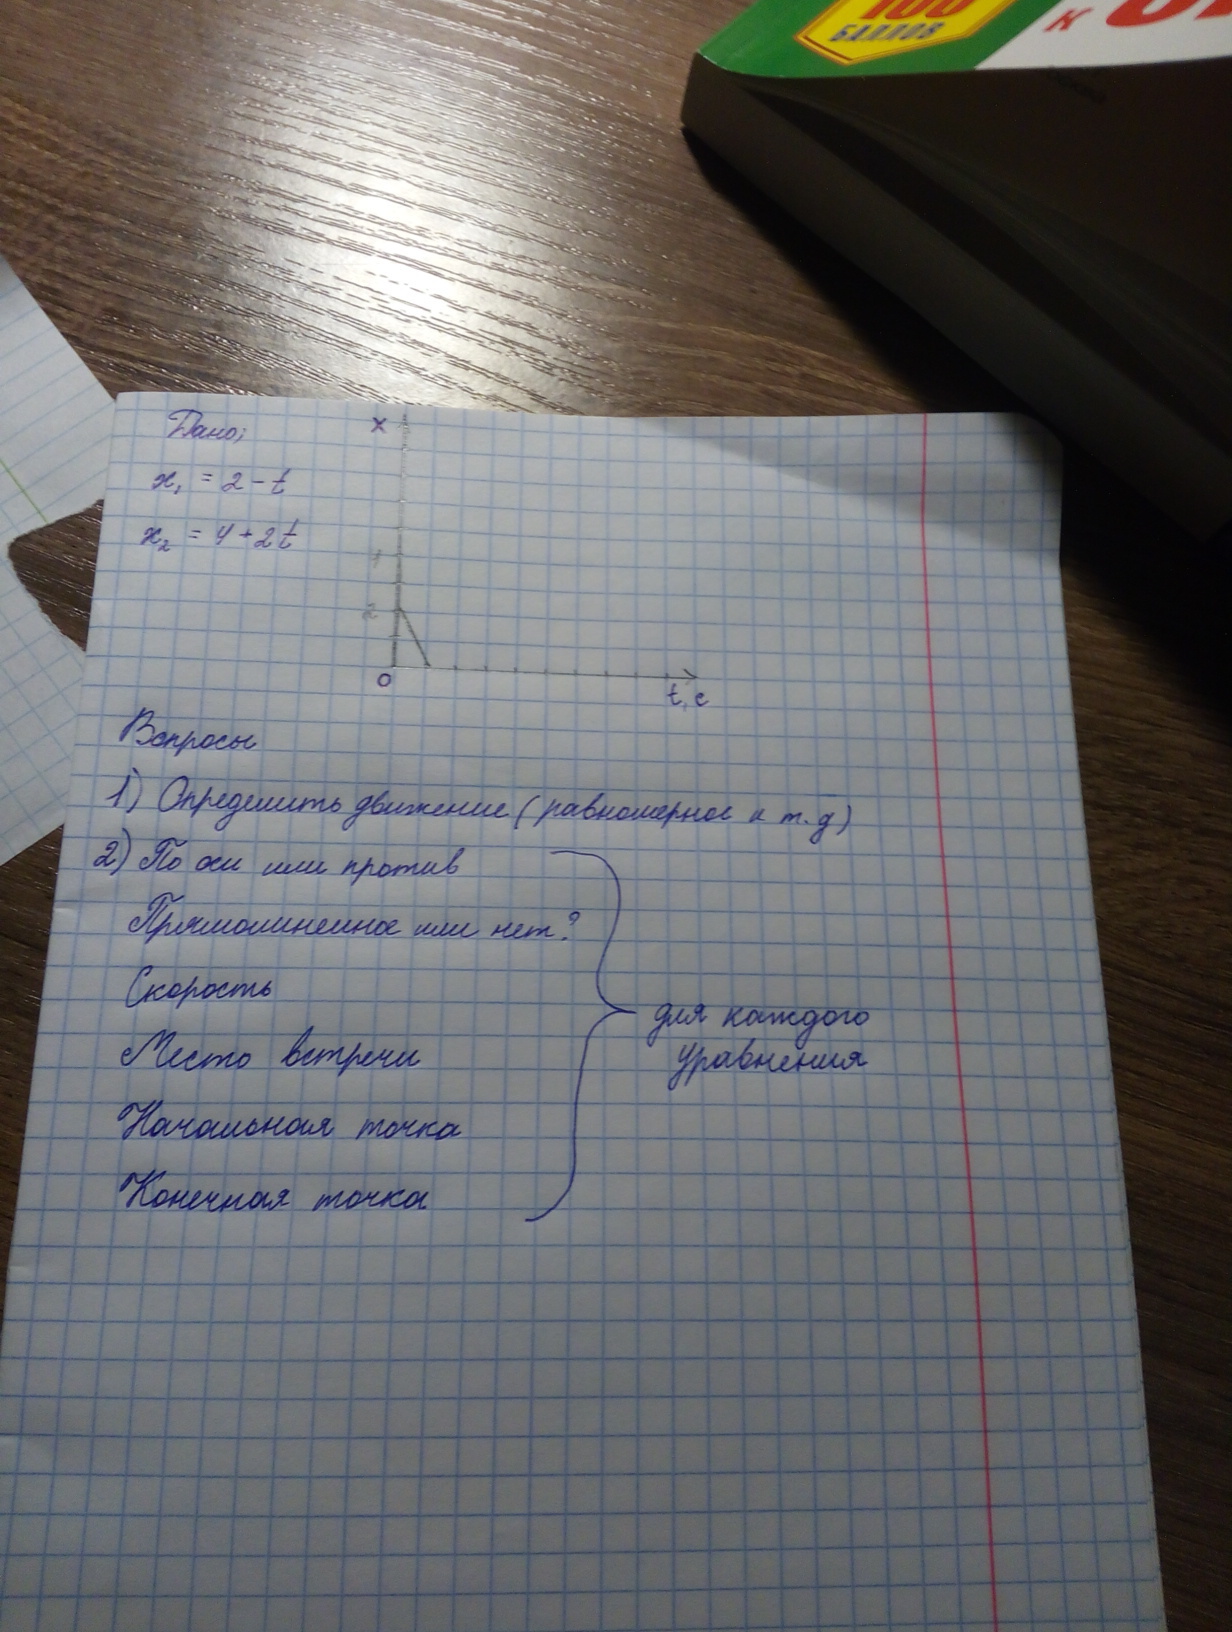 100
БАЛЛОВ
к
Дано:
x
x₁ = 2 - t
x₂ = 4 + 2t
4
2
0
t, c
Вопросы
1) Определить движение (равномерное и т.д)
2) По оси или против
Прямолинеиное или нет?
Скорость
Место встречи
Начальная точка
Конечная точка
для каждого
уравнения